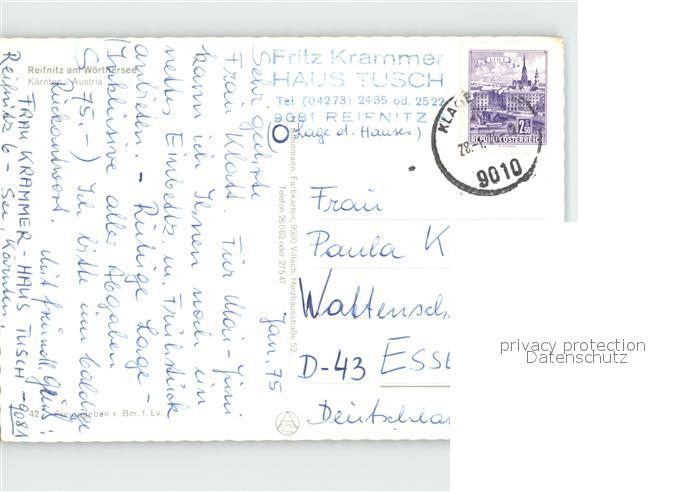 Reifnitz am Wörthersee
Kärnten - Austria
Fritz Krammer
HAUS TUSCH
Tel. (04273) 2435 od. 2522
9081 REIFNITZ
(Lage d. Hauses)
Jän. 75
Sehr geehrte
Frau Klatt. Für Mai-Juni
kann ich Ihnen noch ein
nettes Einbettz. m. Frühstück
anbieten. - Ruhige Lage -
(Inklusive aller Abgaben
S 75.-) Ich bitte um baldige
Rückantwort.
Mit freundl. Grüß:
FRAU KRAMMER - HAUS TUSCH - 9081
Reifnitz 6 - See, Kärnten.
Farbkarten, 9500 Villach, Herzhausstraße 52
Telefon 26062 oder 27547
42 Freigegeben v. Bm. f. Lv.
LINZ
2.50
REPUBLIK ÖSTERREICH
KLAGE
28.-1.
9010
Frau
Paula K
Wattensch
D-43 ESSE
Deutschla
privacy protection
Datenschutz